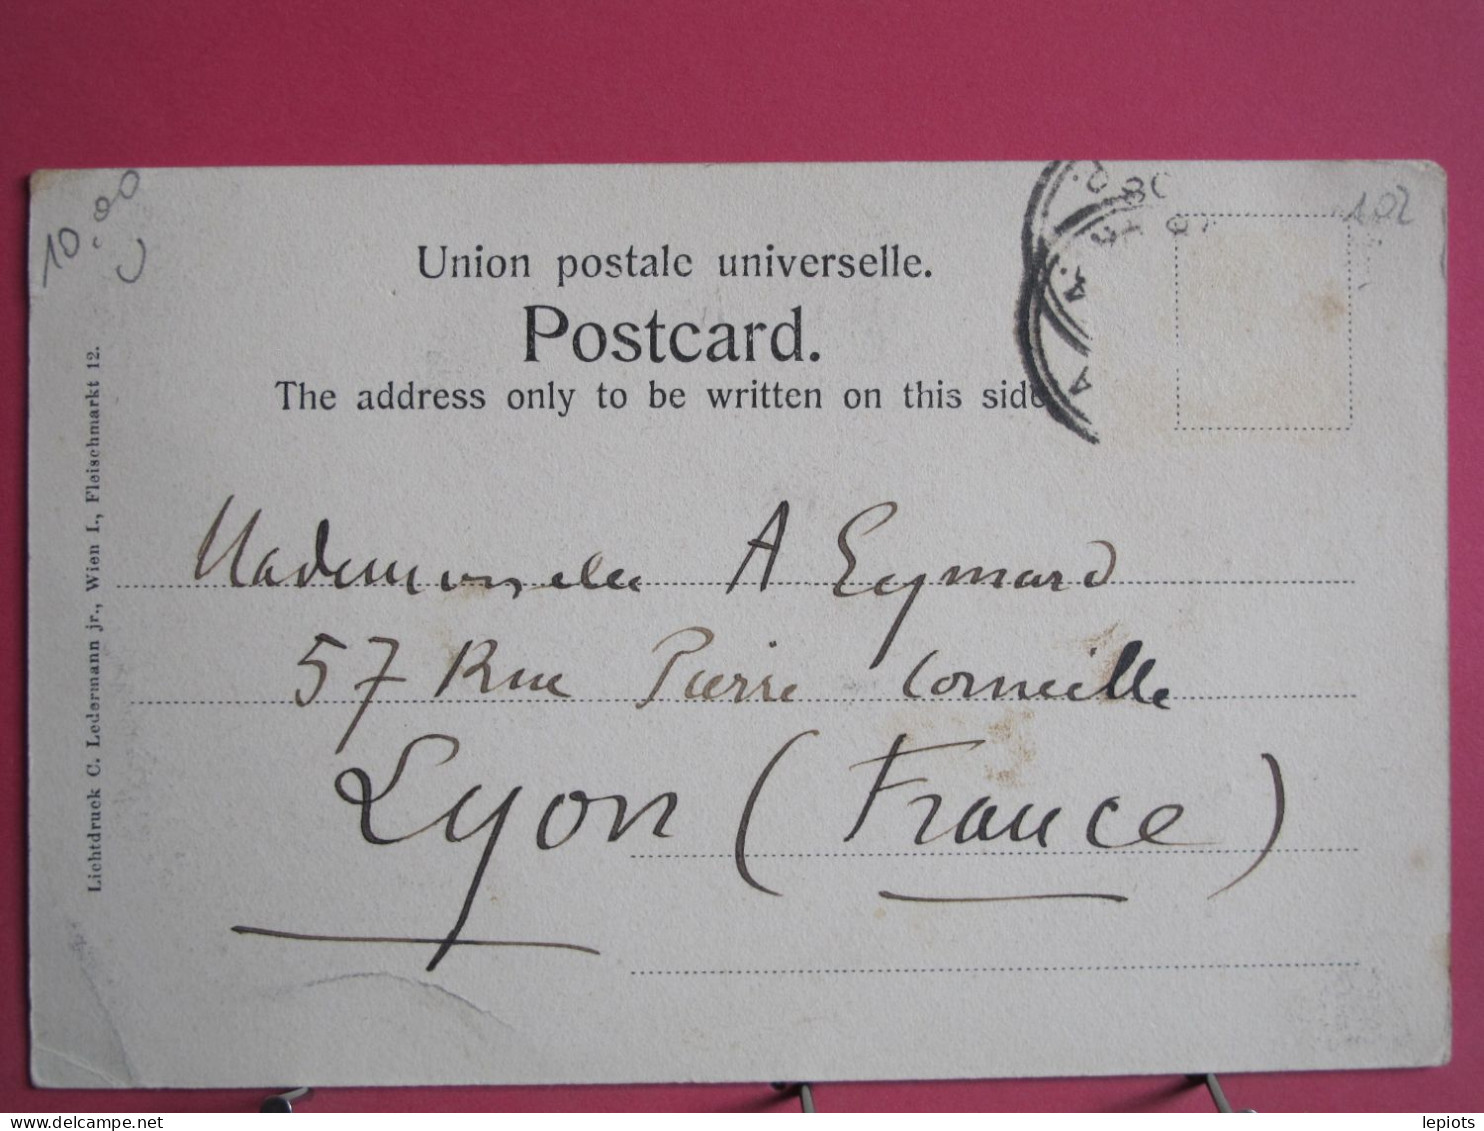 10.90
102
Union postale universelle.
Postcard.
The address only to be written on this side
Lichtdruck C. Ledermann jr., Wien I., Fleischmarkt 12.
Mademoiselle A Eymard
57 Rue Pierre Corneille
Lyon (France)
lepiots